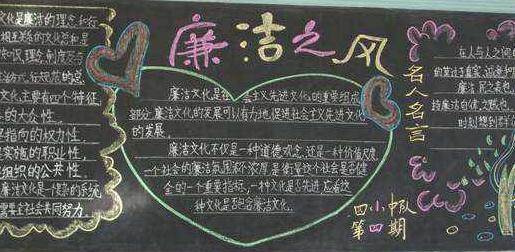 廉洁之风
文化是廉洁的理念和行
相关的文化总和是
识、理念、制度及与
活方式、行规范的总
文化主要有四个特征
的大众性。
是指向的权力性.
实施的职业性,
组织的公共性。
廉洁文化是一个复杂的系统
需要全社会共同努力.
廉洁文化是社会主义先进文化的重要组成
部分.廉洁文化的发展可以有力地促进社会主义先进文化
的发展.
廉洁文化不仅是一种道德观念,还是一种价值尺度
一个社会的廉洁氛围浓不浓厚是衡量这个社会是否健
全的一个重要指标,一种文化是否先进应看这
种文化是否包含廉洁文化.
四小中队
第四期
名人名言
在人与人之间